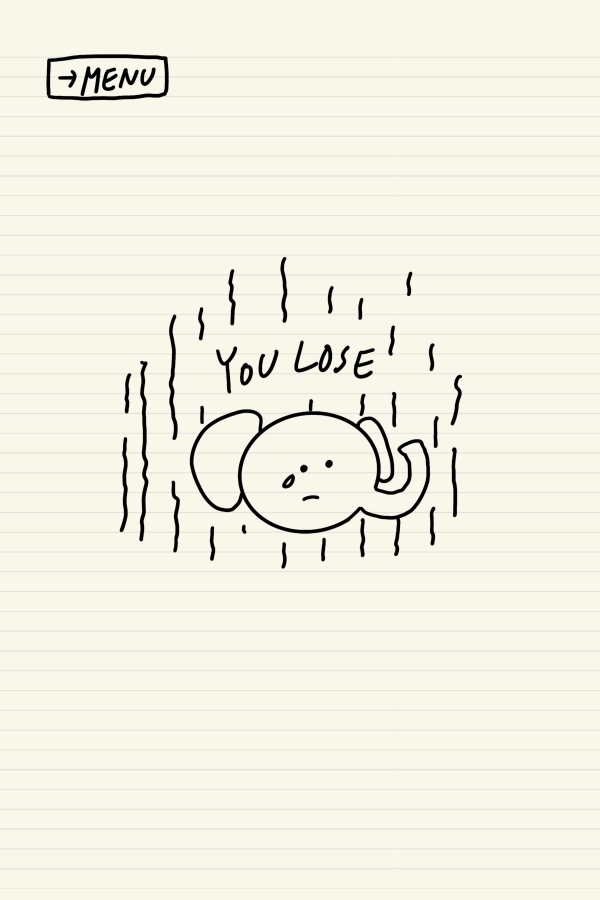 →MENU
YOU LOSE